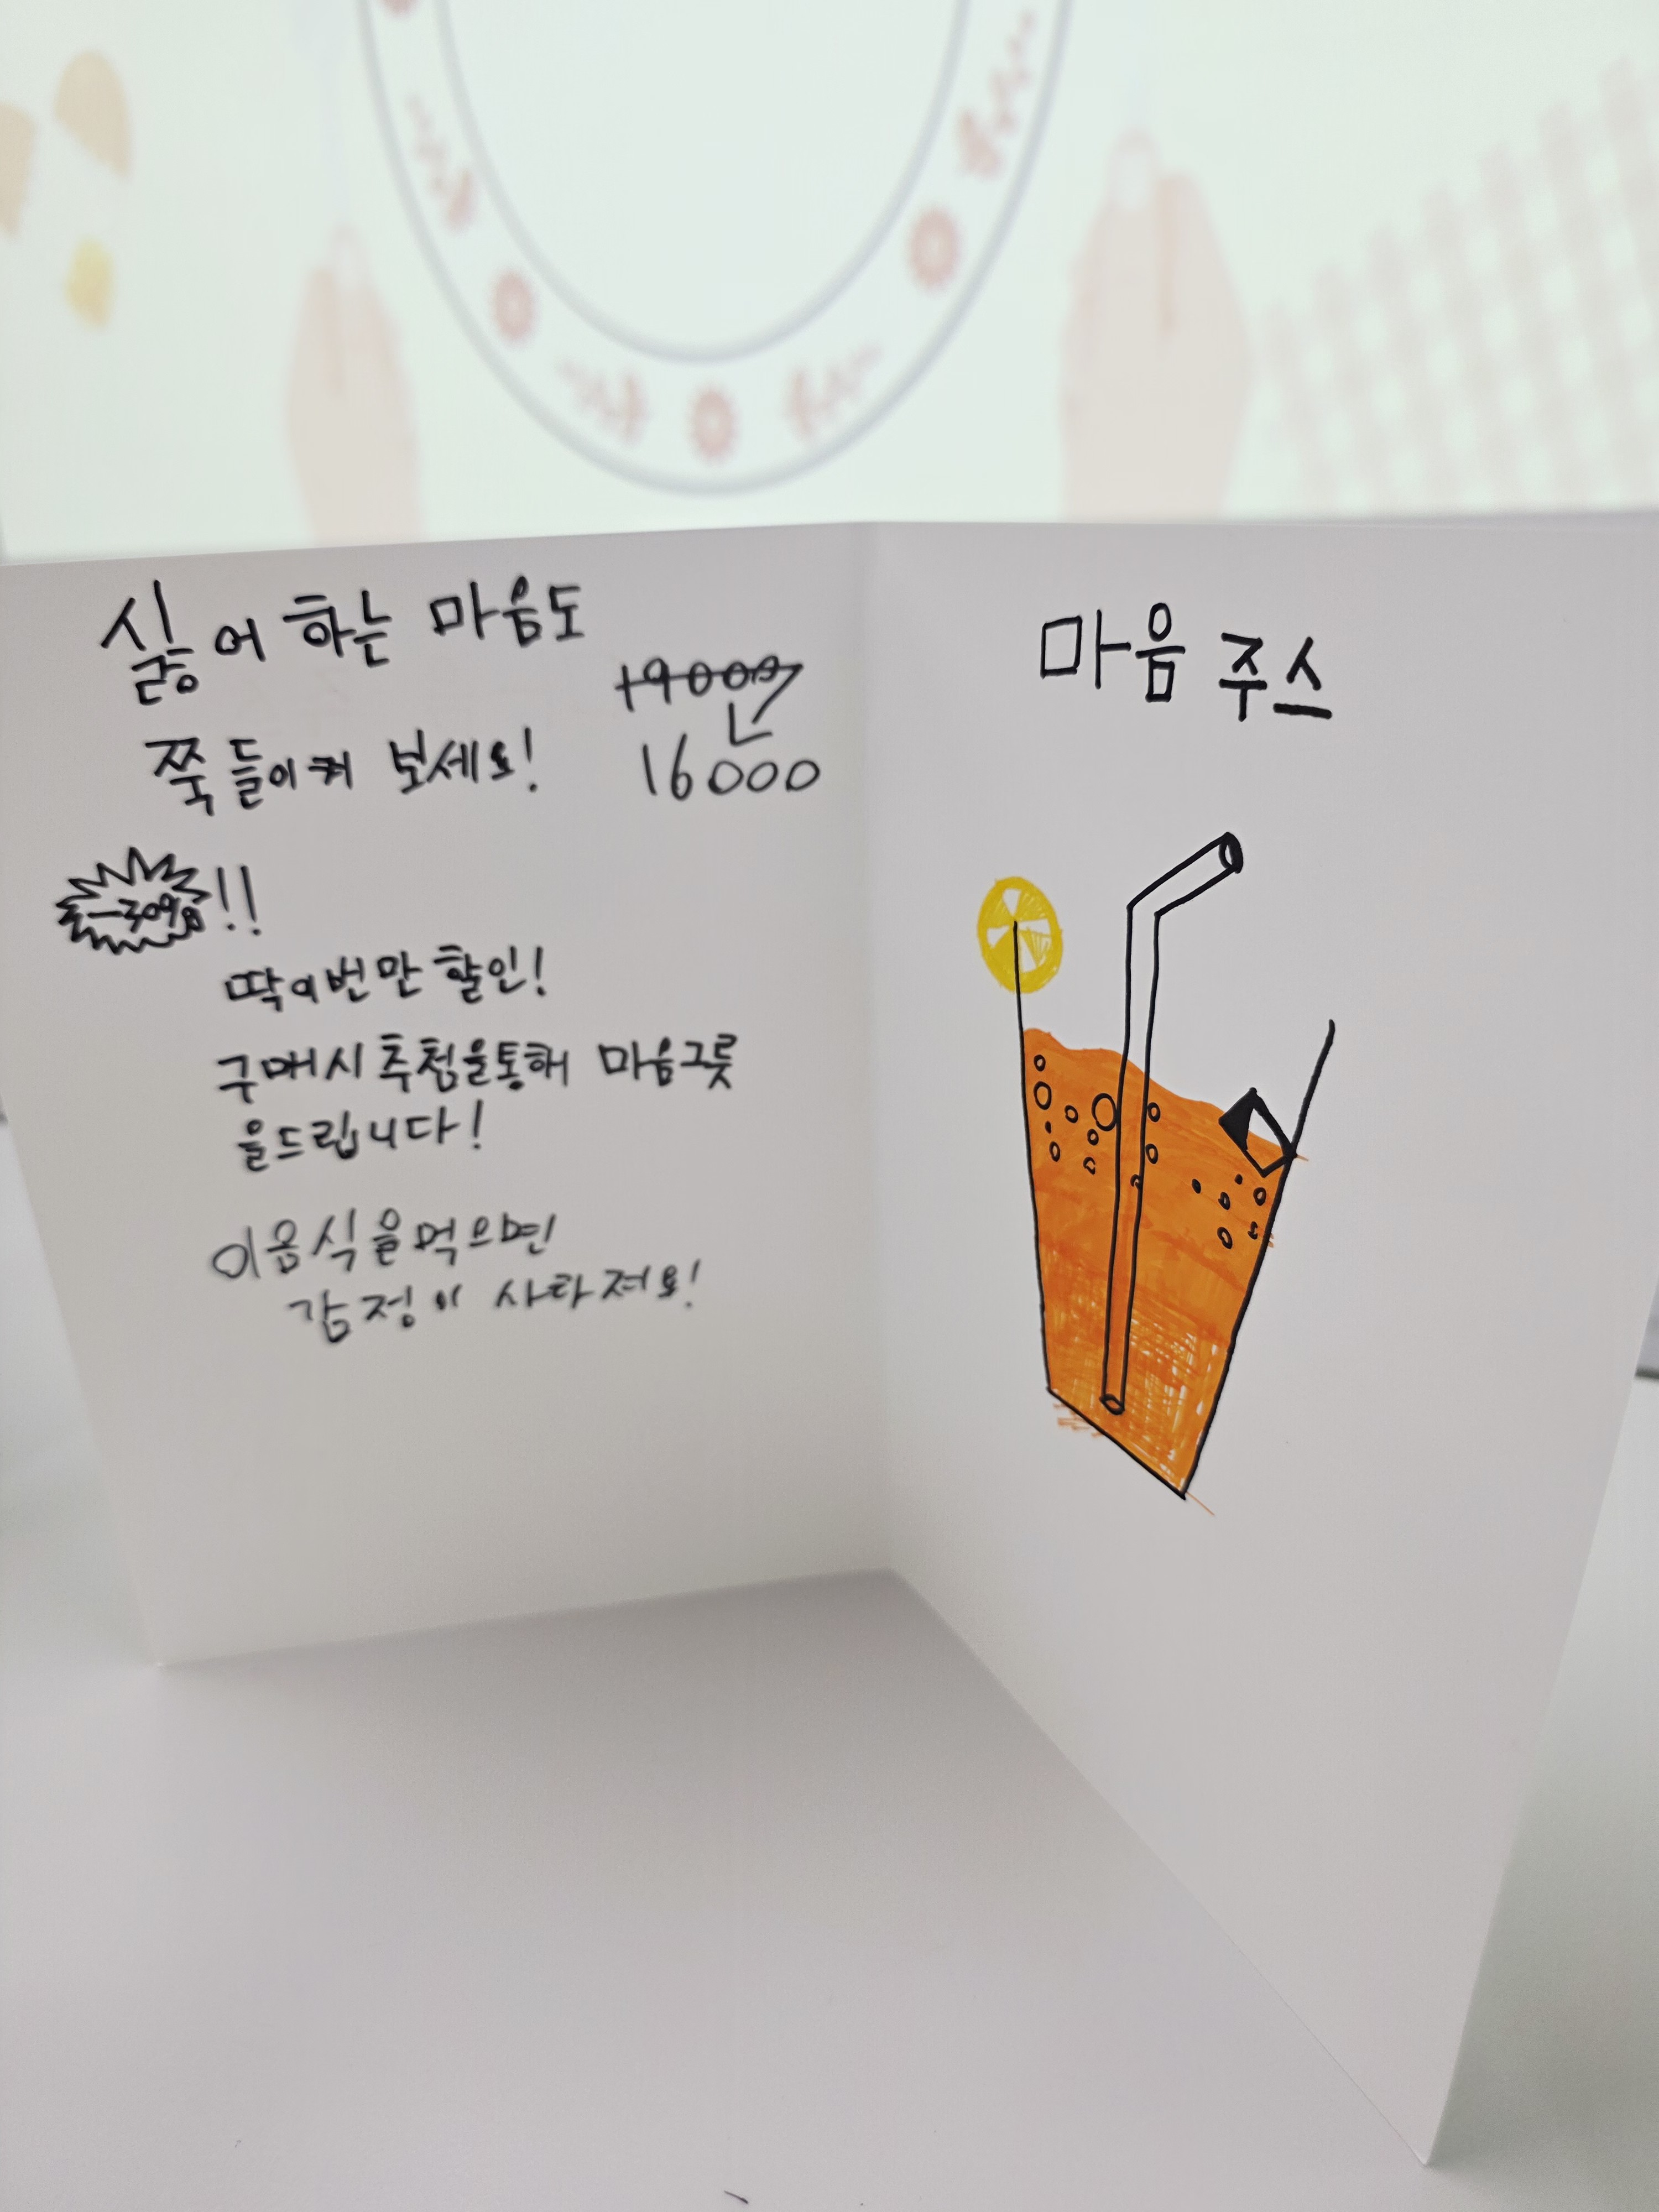 싫어 하는 마음도
+9000
쭉 들이켜 보세요!
16000
-30% !!
딱 이번만 할인!
구매시 추첨을통해 마음그릇
을드립니다!
이음식을먹으면
감정이 사라져요!
마음 주스